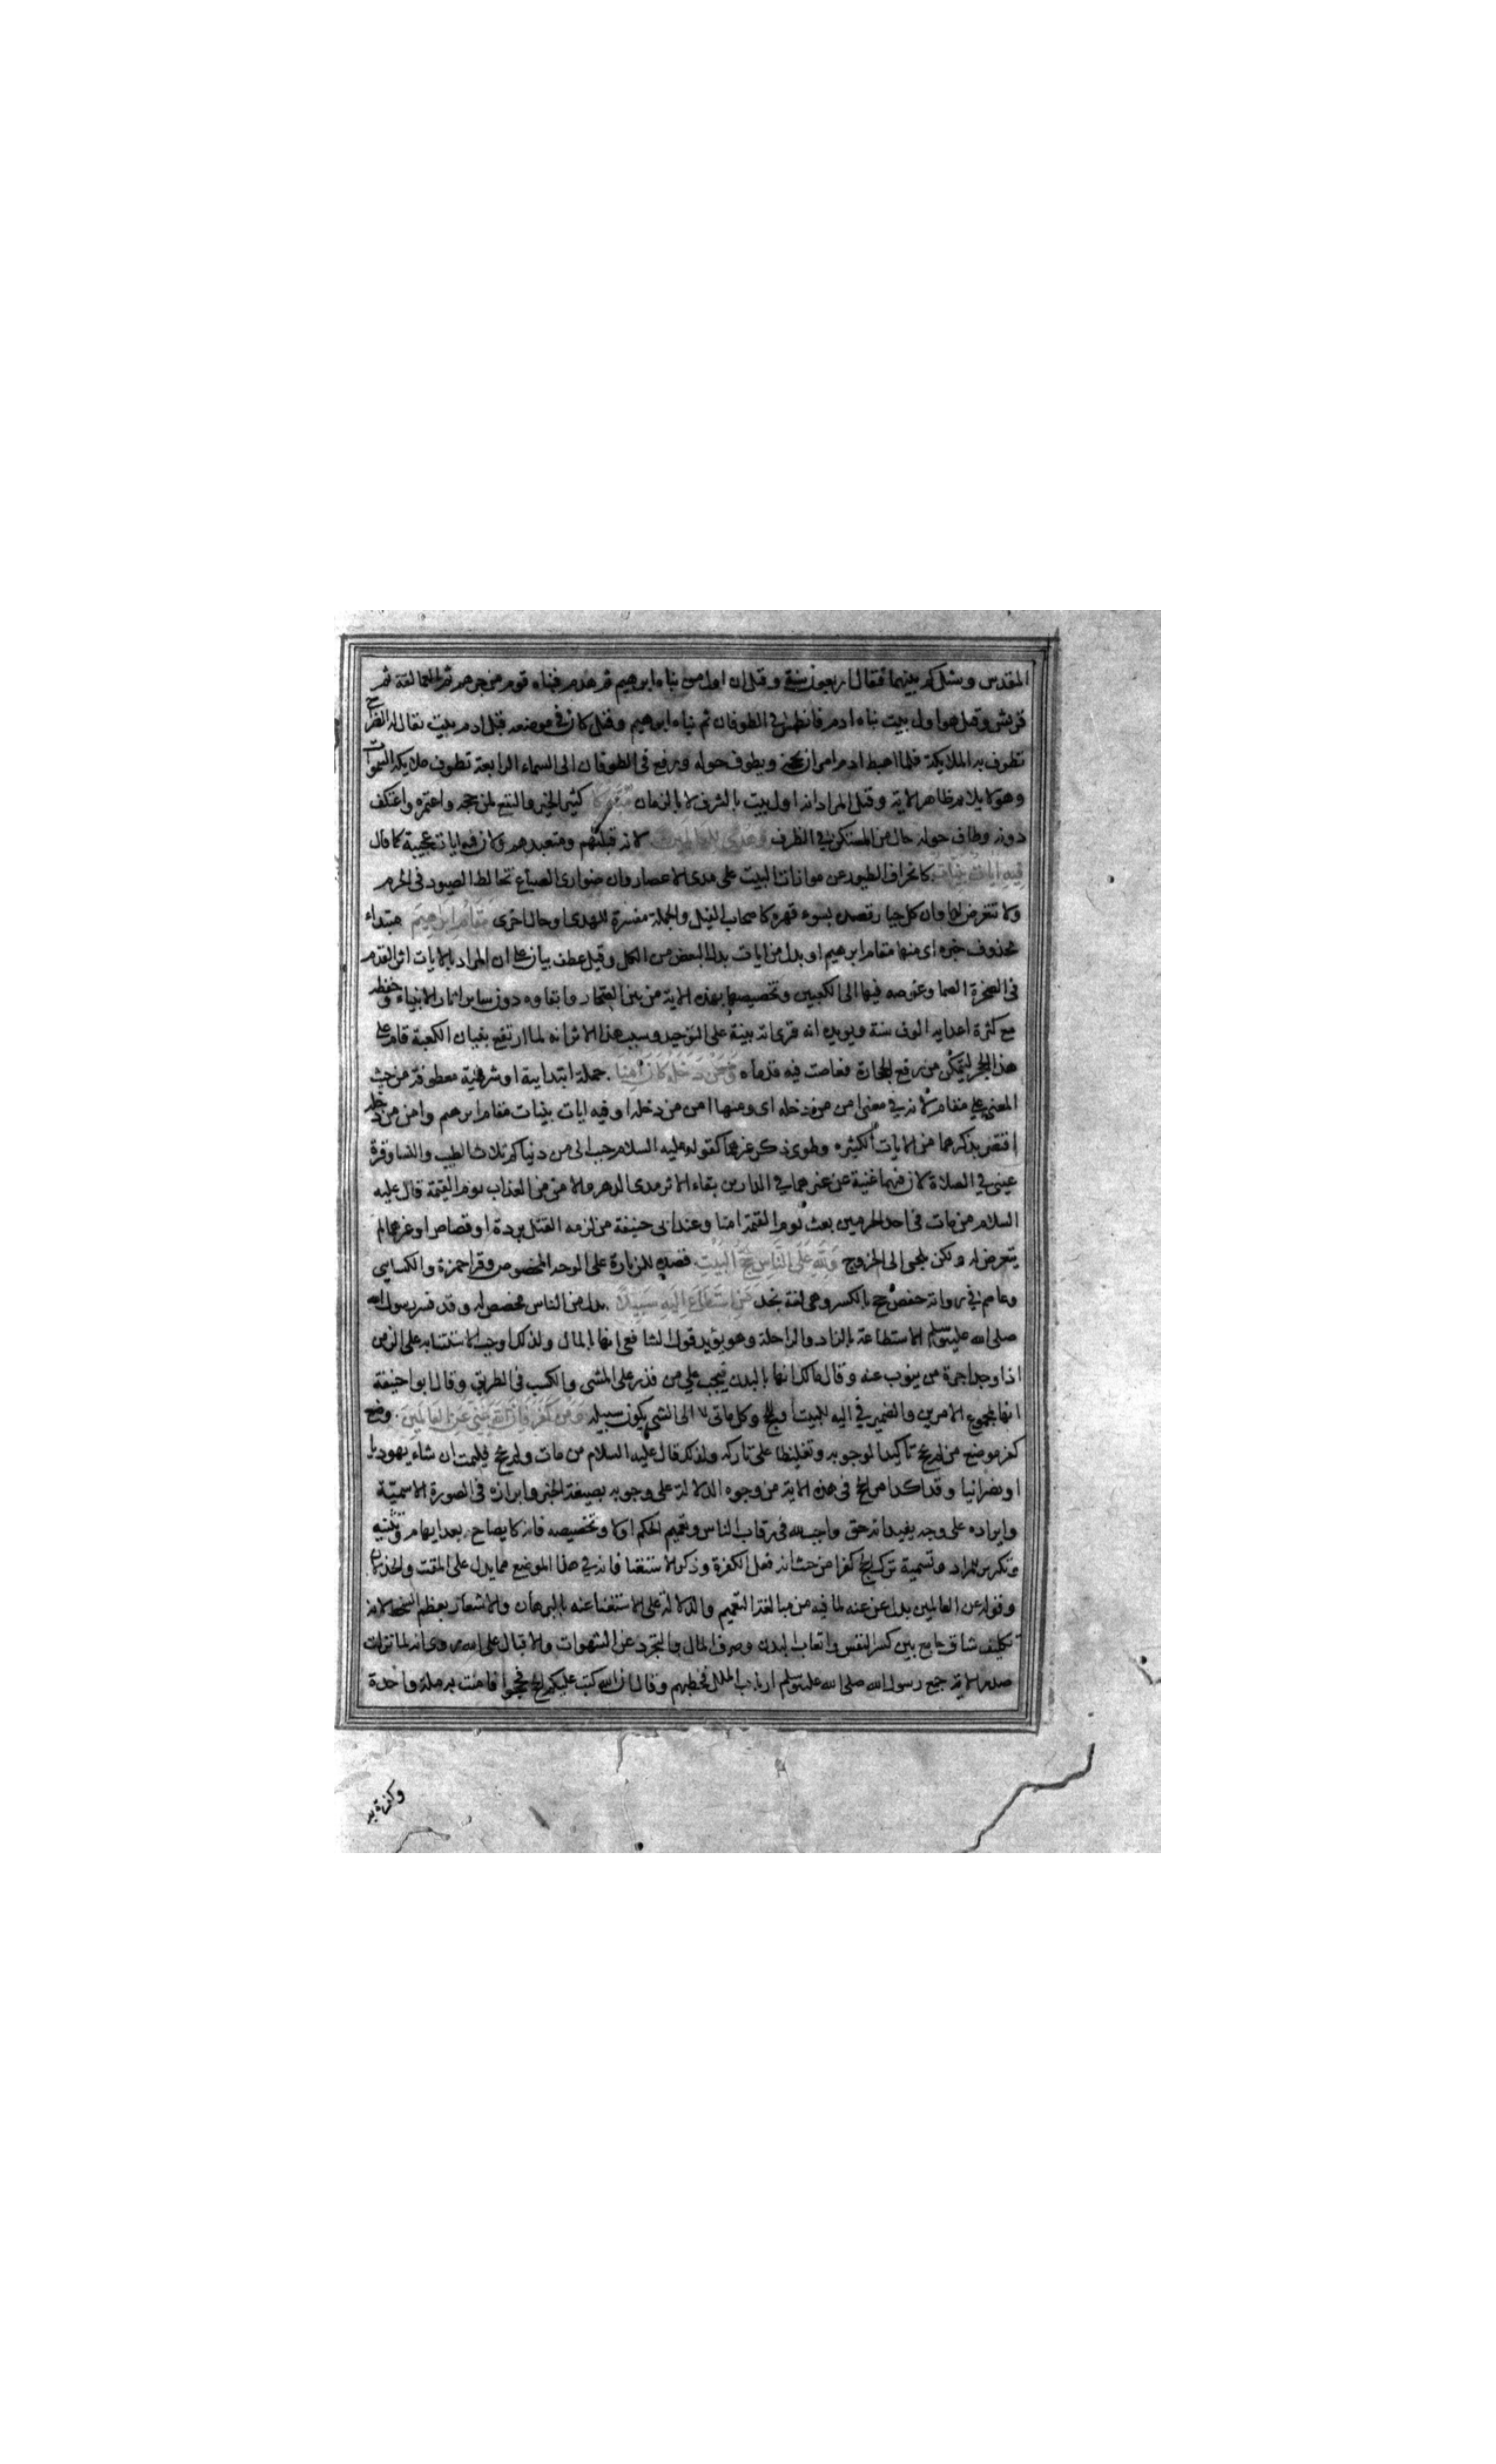 المقدس وسئل كم بينهما فقال اربعون سنة وقيل ان اول من بناه ابرهيم ثم هدم فبناه قوم من جرهم ثم العمالقة ثم
قريش وقيل هو اول بيت بناه ادم فانطمس في الطوفان ثم بناه ابرهيم وقيل كان في موضعه قبل ادم بيت يقال له الضراح
تطوف به الملايكة فلما اهبط ادم امر ان يحجه ويطوف حوله ورفع في الطوفان الى السماء الرابعة تطوف ملايكة السموات
وهو لا يلايم ظاهر الاية وقيل المراد انه اول بيت بالشرف لا بالزمان مُبَارَكًا كثير الخير والنفع لمن حجه واعتمره واعتكف
دونه وطاف حوله حال من المستكن في الظرف وَهُدًى لِلْعَالَمِينَ لانه قبلتهم ومتعبدهم ولان فيه ايات عجيبة كما قال
فِيهِ ايَاتٌ بَيِّنَاتٌ كانحراف الطيور عن موازات البيت على مدى الاعصار وان ضوارى السباع تخالط الصيود في الحرم
ولا تتعرض لها وان كل جبار قصده بسوء قهره كاصحاب الفيل والجملة مفسرة للهدى او حال اخرى مَقَامُ اِبْرٰهِيمَ مبتداء
محذوف خبره اى منها مقام ابرهيم او بدل من ايات بدل البعض من الكل وقيل عطف بيان على ان المراد بالايات اثر القدم
في الصخرة الصما وغوصه فيها الى الكعبين وتخصيصها بهذه الاية من بين الصخار وابقاوه دون ساير اثار الانبياء وحفظه
مع كثرة اعدايه الوف سنة ويويده انه قرئ اية بينة على التوحيد وسبب هذا الاثر انه لما ارتفع بنيان الكعبة قام على
هذا الحجر ليتمكن من رفع الحجارة فغاصت فيه قدماه وَمَنْ دَخَلَهُ كَانَ اٰمِنًا جملة ابتدايية او شرطية معطوفة من حيث
المعنى على مقام لانه في معنى امن من دخله اى ومنها امن من دخله او فيه ايات بينات مقام ابرهيم وامن من دخله
اقتصر بذكرهما من الايات الكثيره وطوى ذكر غيرهما كقوله عليه السلام حبب الى من دنياكم ثلاث الطيب والنسا وقرة
عينى في الصلاة لان فيهما غنية عن غيرهما في الدارين بقاء الاثر مدى الدهر والامن من العذاب يوم القيمة قال عليه
السلام من مات في احد الحرمين بعث يوم القيمة امنا وعند ابى حنيفة من لزمه القتل بردة او قصاص او غيرهما لم
يتعرض له ولكن يلجئ الى الخروج وَلِلّٰهِ عَلَى النَّاسِ حِجُّ الْبَيْتِ قصده للزيارة على الوجه المخصوص وقرا حمزة والكسايي
وعاصم في رواية حفص حج بالكسر وهى لغة نجد مَنِ اسْتَطَاعَ اِلَيْهِ سَبِيلًا بدل من الناس مخصص له وقد فسر رسول الله
صلى الله عليه وسلم الاستطاعة بالزاد والراحلة وهو يؤيد قول الشافعى انها بالمال ولذلك اوجب الاستنابه على الزمن
اذا وجد اجرة من ينوب عنه وقال مالك انها بالبدن فيجب على من قدر على المشى والكسب في الطريق وقال ابو حنيفة
انها بمجموع الامرين والضمير في اليه للبيت او الحج وكل ماتى الى الشى يكون سبيله وَمَنْ كَفَرَ فَاِنَّ اللهَ غَنِىٌّ عَنِ الْعَالَمِينَ وضع
كفر موضع من لم يحج تاكيدا لوجوبه وتغليظا على تاركه ولذلك قال عليه السلام من مات ولم يحج فليمت ان شاء يهوديا
او نصرانيا وقد اكد امر الحج في هذه الاية من وجوه الدلالة على وجوبه بصيغة الخبر وابرازه في الصورة الاسميّة
وايراده على وجه يفيد انه حق واجب لله في رقاب الناس وتعميم الحكم اولا وتخصيصه فانه كايضاح بعد ابهام وتثنيه
وتكرير للمراد وتسمية ترك الحج كفرا من حيث انه فعل الكفرة وذكر الاستغنا فانه في هذا الموضع مما يدل على المقت والخذلان
وقوله عن العالمين بدل عن عنه لما فيه من مبالغة التعميم والدلالة على الاستغنا عنه بالبرهان والاشعار بعظم السخط لانه
تكليف شاق جامع بين كسر النفس واتعاب البدن وصرف المال والتجرد عن الشهوات والاقبال على الله روى انه لما نزلت
صدر الاية جمع رسول الله صلى الله عليه وسلم ارباب الملل فخطبهم وقال ان الله كتب عليكم الحج فحجوا فامنت به ملة واحدة
وكفرت به